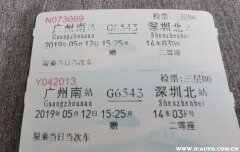 N073009
检票:
广州南站 G6543 深圳北站
Guangzhounan
2019年05月12日 15:25开
14车03
二等座
限乘当日当次车
Y042013
检票:
广州南站 G6543 深圳北站
Guangzhounan
2019年05月12日 15:25开
14车03
二等座
限乘当日当次车